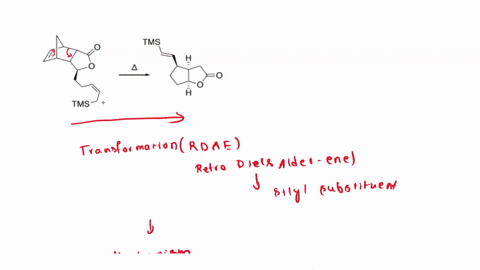 TMS
H
O
O
Δ
O
O
H
TMS
Transformation (RDAE)
Retro Diels Alder-ene)
silyl substituent